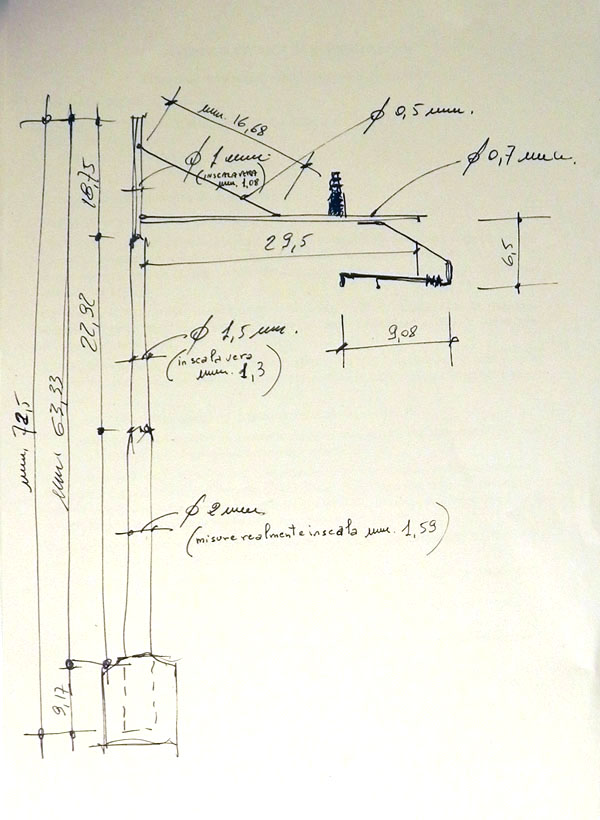 mm. 16,68
ϕ 0,5 mm.
ϕ 1 mm.
(IN SCALA VERA
mm. 1,08)
ϕ 0,7 mm.
18,75
29,5
6,5
9,08
22,92
ϕ 1,5 mm.
(in scala vera
mm. 1,3)
mm. 72,5
mm 63,33
ϕ 2 mm.
(misure realmente in scala mm. 1,59)
9,17